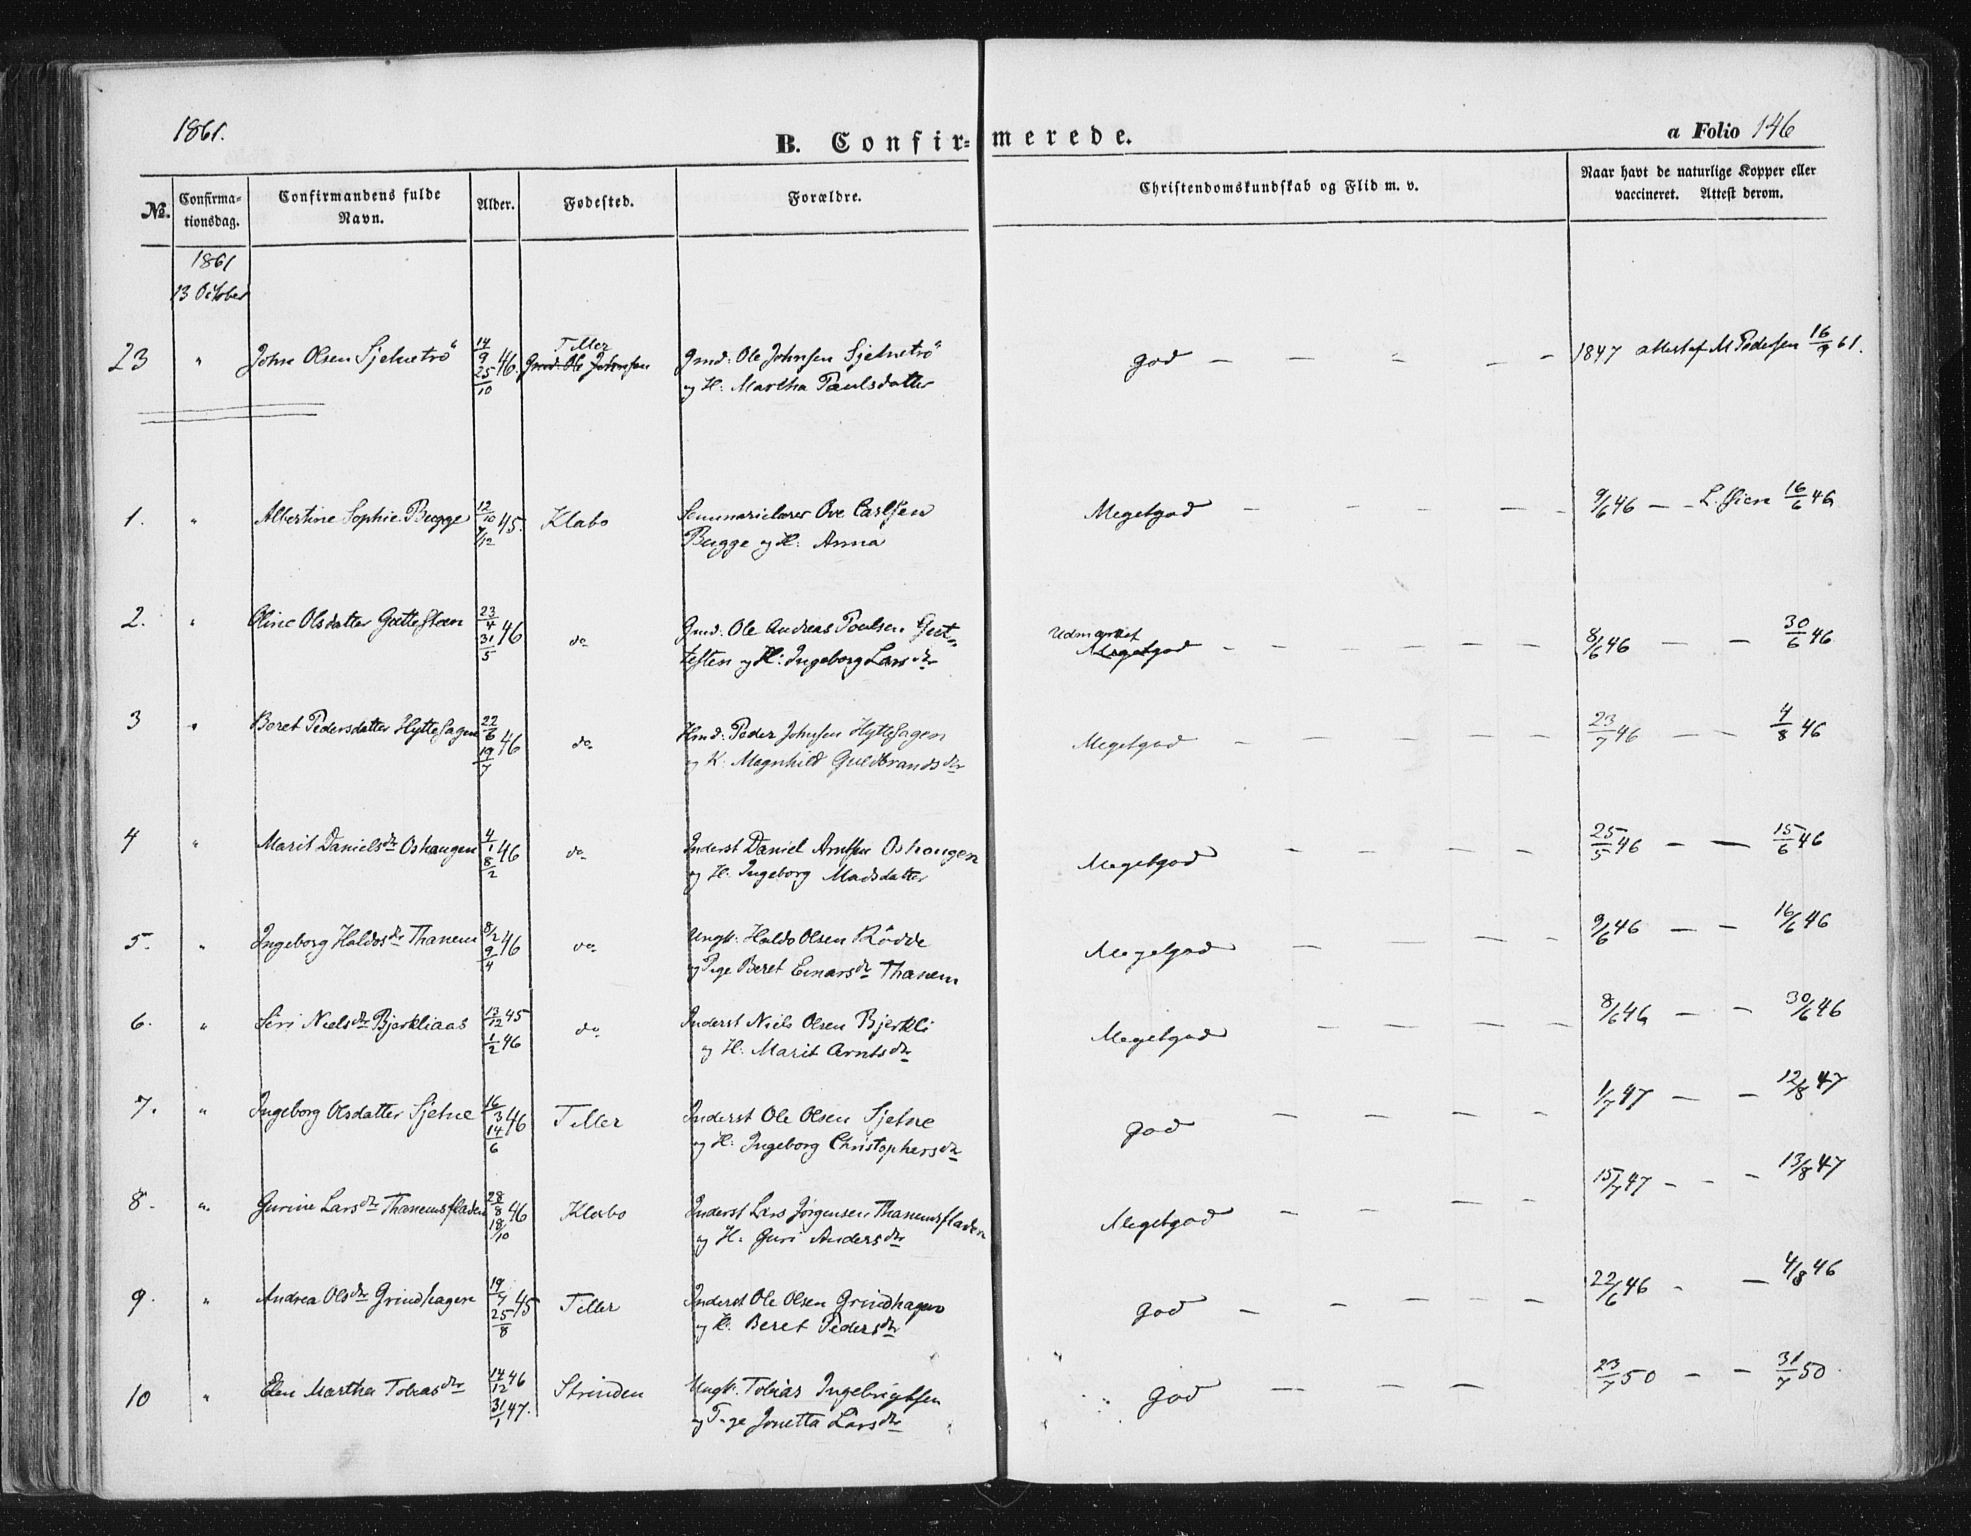 1861.
B. Confir=merede.
a Folio 146
No.
Confirma-
tionsdag.
Confirmandens fulde
Navn.
Alder.
Fødested.
Forældre.
Christendomskundskab og Flid m. v.
Naar havt de naturlige Kopper eller
vaccineret. Attest derom.
1861
13 October
23 " John Olsen Sjetnetrö 14/9 46 25/10 Tiller Gmd: Ole Johnsen Gmd: Ole Johnsen Sjetnetrö
og H: Martha Paulsdatter
god — — — — — 1847 attest af M Pedersen 16/9 61.
1. " Albertine Sophie Bugge 12/10 45. 7/12 Klæbo Seminarielærer Ove Carlsen
Bugge og H: Anna
Megetgod — — — — — 9/6 46 — — L. Øien 16/6 46
2. " Oline Olsdatter Gjettesteen 23/4 46 31/5 do Gmd: Ole Andreas Poulsen Gjet-
testen og H: Ingeborg Larsdtr
Udmærket
Megetgod — — — — — — — 8/6 46 — — 30/6 46
3 " Beret Pedersdatter Hyttehagen 22/6 46 19/7 do Hmd: Peder Johnsen Hyttehagen
og K. Magnhild Guldbrandsdtr
Megetgod — — — — — — — 23/7 46 — — 4/8 46
4 " Marit Danielsdtr Oshaugen 4/1 46 8/2 do Inderst Daniel Arntsen Oshougen
og H: Ingeborg Madsdatter
Megetgod — — — — 25/5 46 — — 15/6 46
5. " Ingeborg Haldosdtr Thanem 8/2 46 9/4 do Ungk: Haldo Olsen Rödde
og Pige Beret Einarsdtr Thanem
Megetgod — — — — 9/6 46 — — 16/6 46
6. " Siri Nielsdtr Bjerkliaas 13/12 45 1/2 46 do Inderst Niels Olsen Bjerkli
og H: Marit Arntsdtr
Megetgod — — — — — 8/6 46 — — 30/6 46
7. " Ingeborg Olsdatter Sjetne 16/3 46 14/6 Tiller Inderst Ole Olsen Sjetne
og H: Ingeborg Christophersdtr
god — — — — — 1/7 47 — — 12/8 47
8. " Gurine Larsdtr Thanemsfladen 28/8 46 18/10 Klæbo Inderst Lars Jörgensen Thanemsfladen
og H. Guri Andersdtr
Megetgod — — — — 15/7 47 — — — 13/8 47
9. " Andrea Olsdtr Grindhagen 19/7 45 25/8 Tiller Inderst Ole Olsen Grindhagen
og H. Beret Pedersdtr
god — — — — — 22/6 46 — — 4/8 46
10 " Elen Martha Tobiasdtr 14/12 46 31/1 47. Strinden Ungk. Tobias Ingebrigtsen
og Pige Jonetta Larsdtr
god — — — 23/7 50 — — 31/7 50.